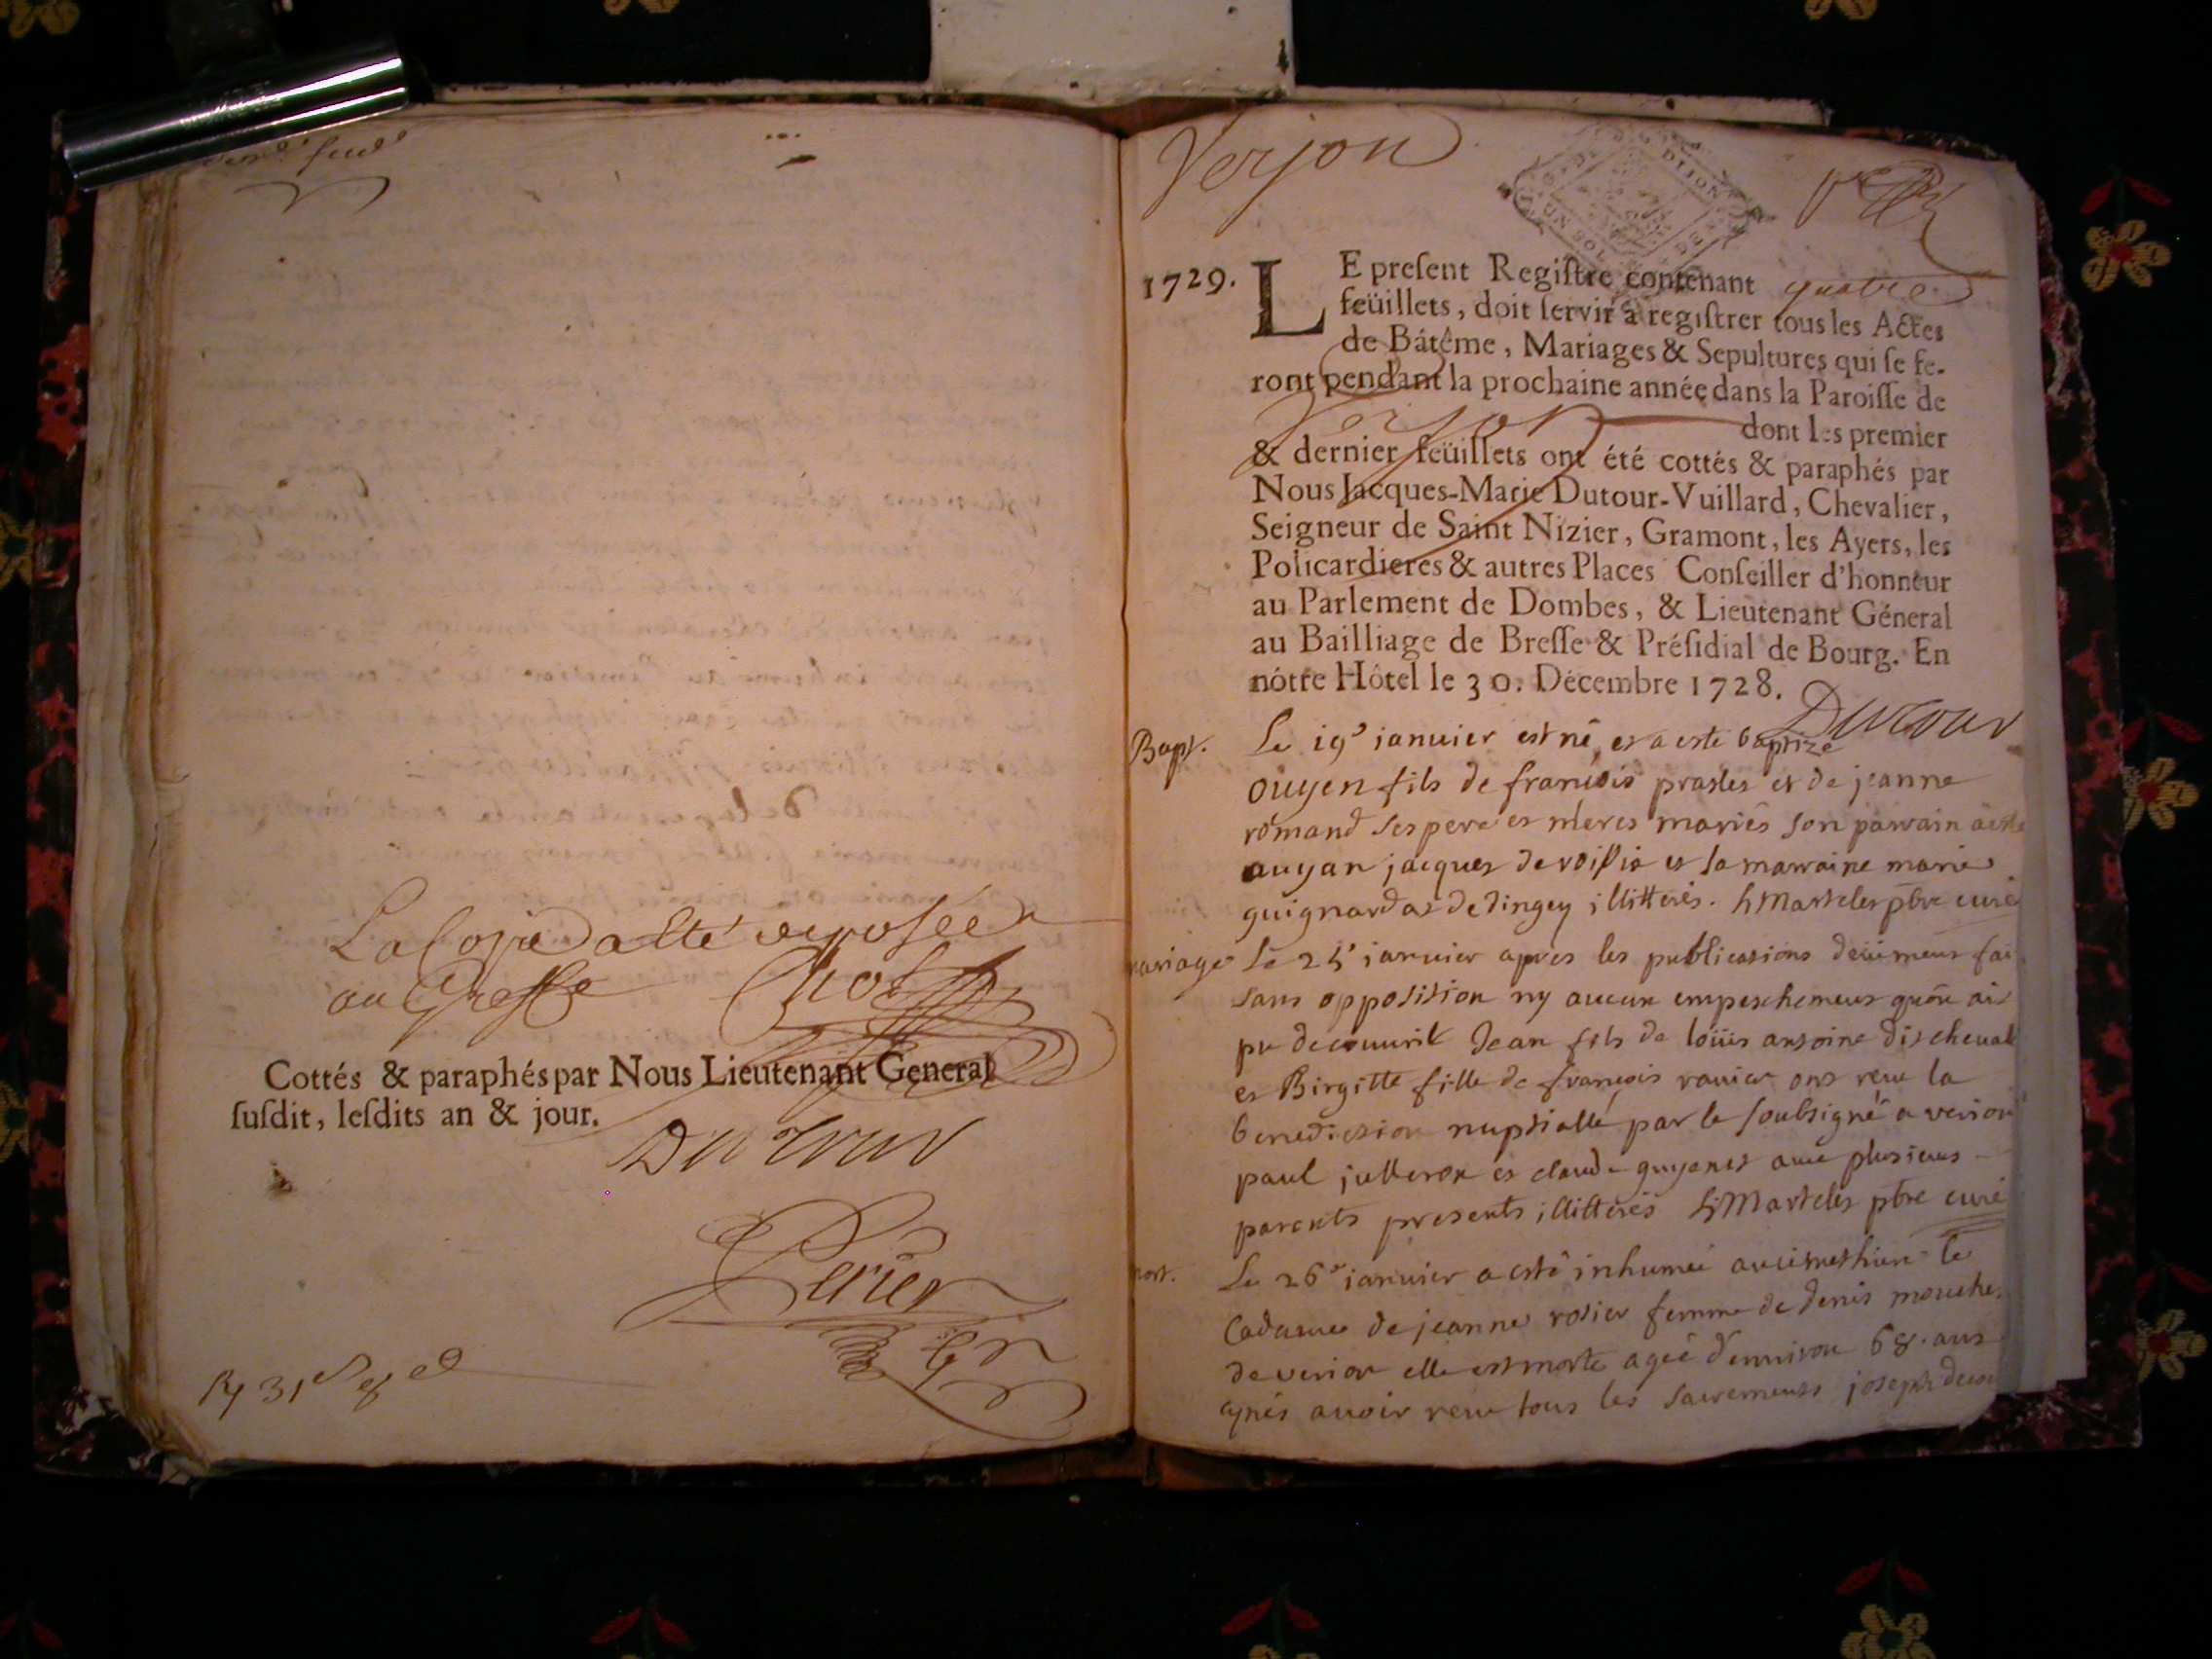 La Copie a esté deposée
au Greffe
Cottés & paraphés par Nous Lieutenant General
suſdit, leſdits an & jour.
Dutour
Perier
Verjon
1729. LE preſent Regiſtre contenant quatre
feüillets, doit ſervir à regiſtrer tous les Actes
de Bâtême, Mariages & Sepultures qui ſe fe-
ront pendant la prochaine année dans la Paroiſſe de
Verjon dont les premier
& dernier feüillets ont été cottés & paraphés par
Nous Jacques-Marie Dutour-Vuillard, Chevalier,
Seigneur de Saint Nizier, Gramont, les Ayers, les
Policardieres & autres Places Conſeiller d'honneur
au Parlement de Dombes, & Lieutenant Géneral
au Bailliage de Breſſe & Préſidial de Bourg. En
nôtre Hôtel le 30. Décembre 1728.
Dutour
Bapt. Le 19e ianuier est né et a esté baptizé
ouyen fils de francois prastes et de jeanne
romand ses pere et meres mariés son parrain a esté
ouyan jacques de et sa marraine marie
guignardat de dingey illitterés. Marteles pbre curé
mariage Le 25e ianuier apres les publications deüement fai
sans opposition ny aucun empeschement quon ait
pu decouurir Jean fils de loüis antoine dit cheual
et Birgitte fille de françois ravier ont receu la
benediction nuptialle par le soubsigné a verion
paul julleron et claude guyenet auec plusieurs
parents presents illitterés Marteles pbre curé
mort. Le 26e ianuier a esté inhumé au cimethiere le
Cadavre de jeanne rosier femme de denis mouche
de verion elle est morte ageé d'enuiron 68. ans
apres auoir receu tous les sacrements joseph